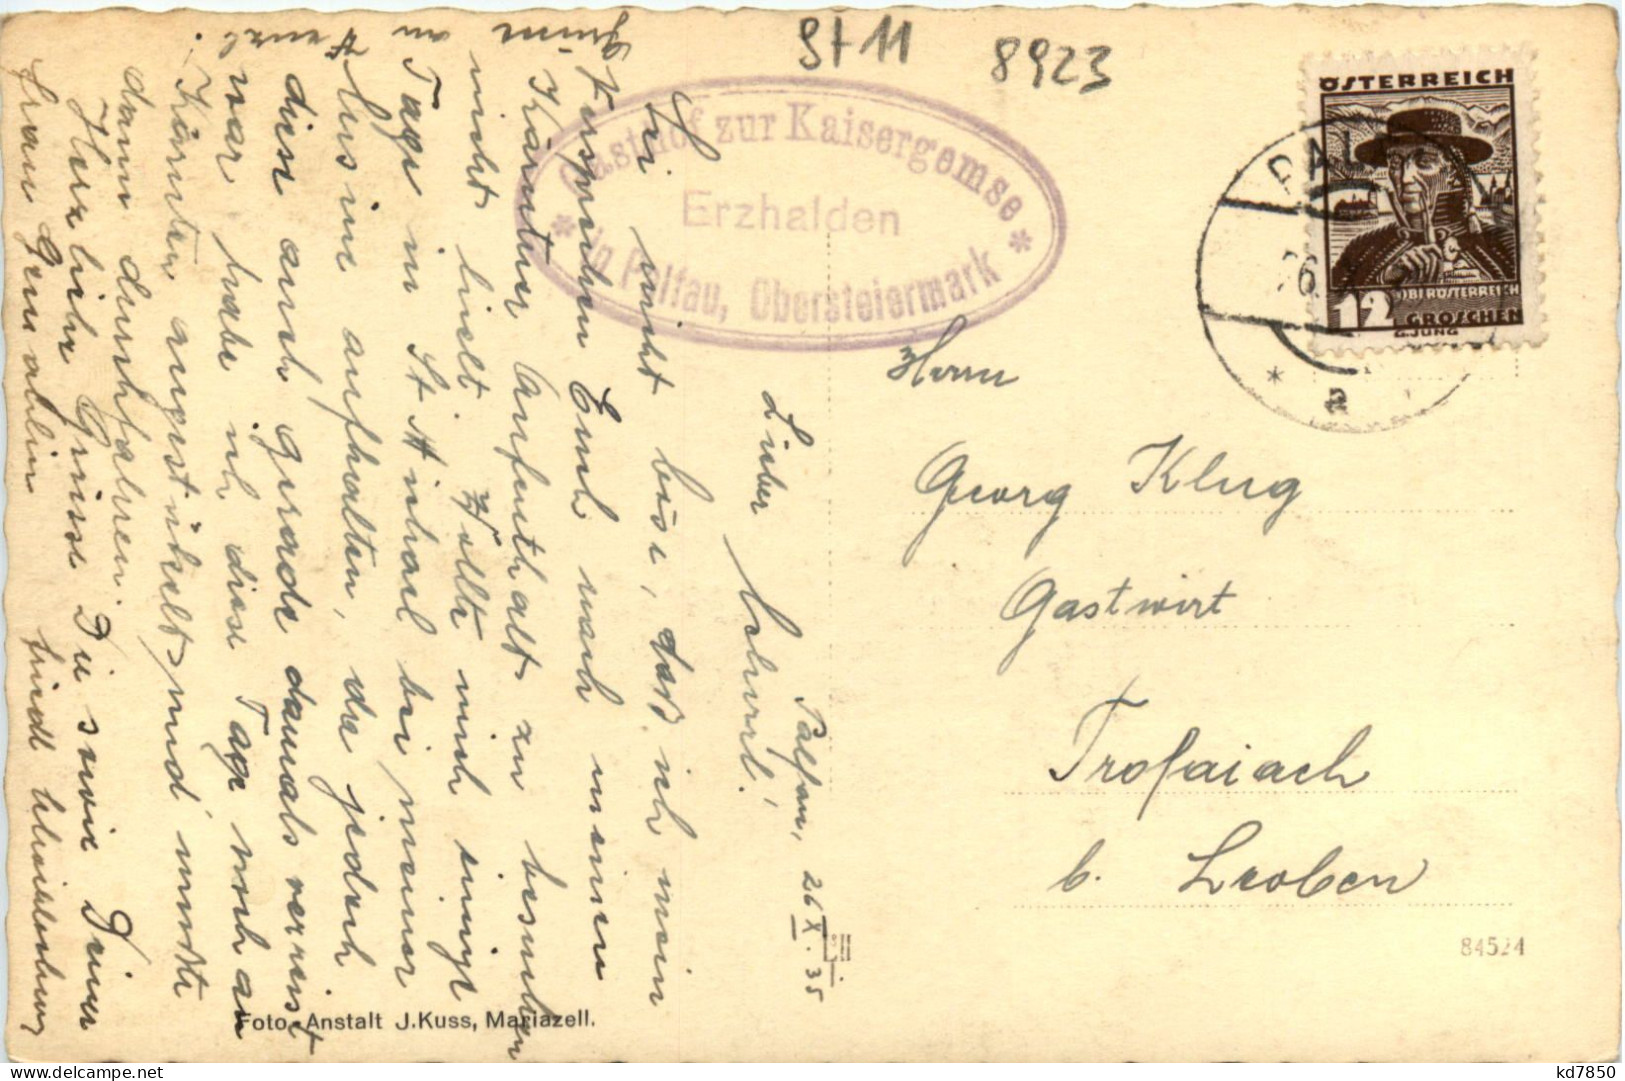 St 11
8923
ÖSTERREICH
OBERÖSTERREICH
12 GROSCHEN
G.JUNG
Gasthof zur Kaisergemse
Erzhalden
in Palfau, Obersteiermark
Palfau, 26 X. 35
Lieber
Sei nicht böse, daß ich mein
Versprechen Euch nach meinen
Kärntner Aufenthalt zu besuchen
nicht hielt. Wollte mich einige
Tage in St Michael bei meiner
aufhalten, die jedoch
diese auch gerade damals verreist
war habe ich diese Tage noch an
Kärnten angestückelt und mußte
dann durchfahren.
Herzliche Grüsse Dir sowie Deiner
Frau Gemahlin
Herrn
Georg Klug
Gastwirt
Trofaiach
b. Leoben
84524
Foto-Anstalt J.Kuss, Mariazell.
kd7850